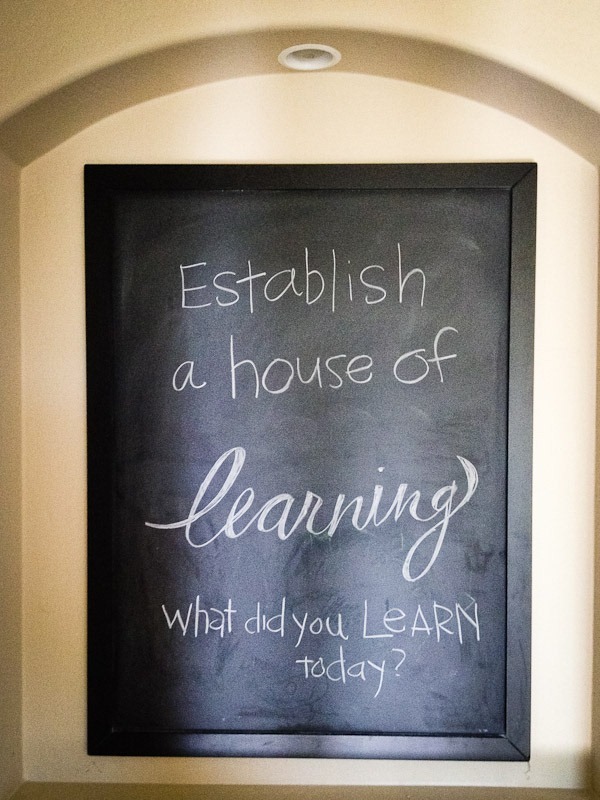 Establish
a house of
learning
What did you LeARN
today?